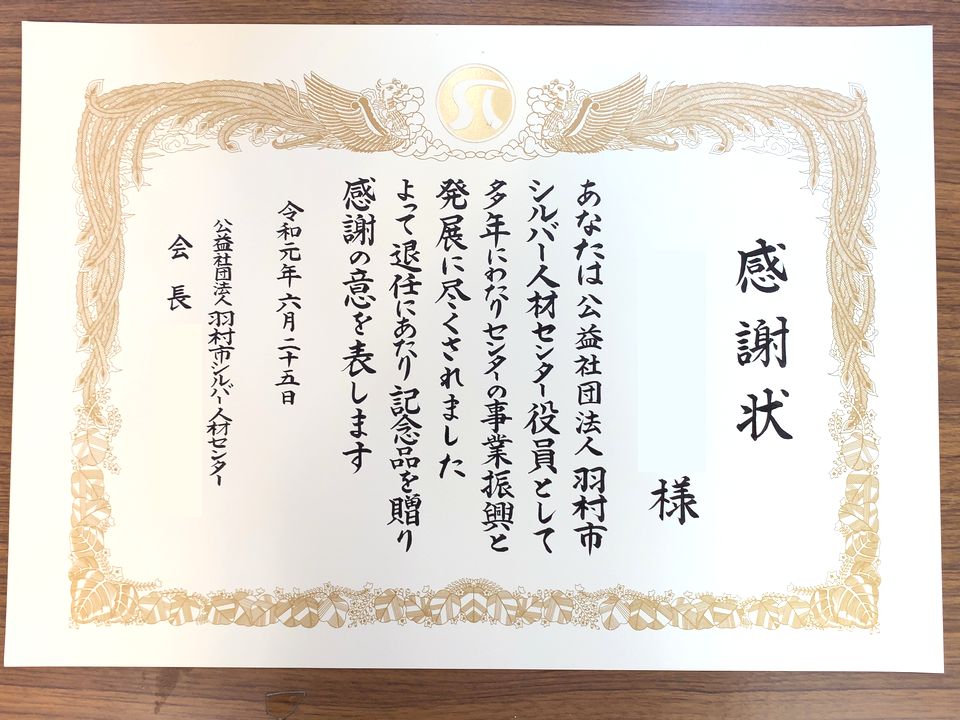 感謝状
様
あなたは公益社団法人羽村市
シルバー人材センター役員として
多年にわたりセンターの事業振興と
発展に尽くされました
よって退任にあたり記念品を贈り
感謝の意を表します
令和元年六月二十五日
公益社団法人羽村市シルバー人材センター
会長